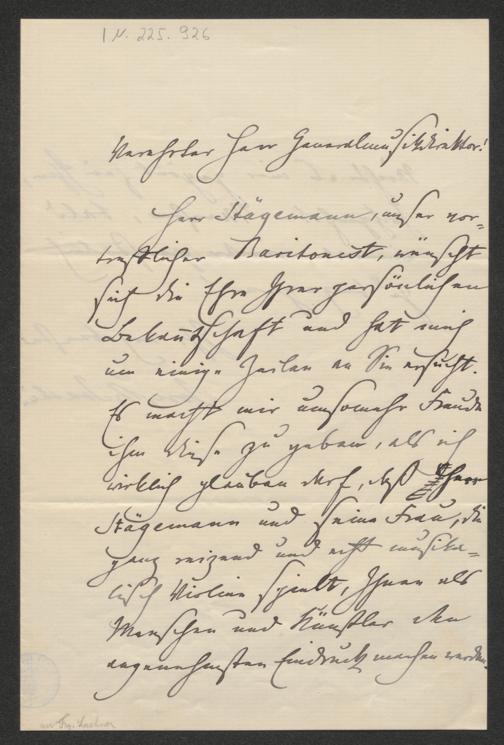 I.N. 225.926
Verehrter Herr Generalmusikdirektor!
Herr Stägemann, unser vor-
trefflicher Baritonist, wünscht
sich die Ehre Ihrer persönlichen
Bekanntschaft und hat mich
um einige Zeilen an Sie ersucht.
Es macht mir umsomehr Freude
ihm diese zu geben, als ich
wirklich glauben darf, daß Herr
Stägemann und seine Frau, die
ganz reizend und echt musika-
lisch Violine spielt, Ihnen als
Menschen und Künstler den
angenehmsten Eindruck machen werden.
an Frz. Lachner